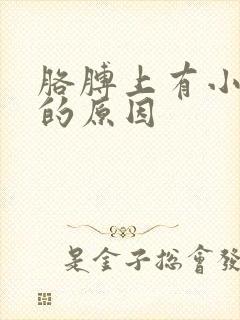 胳膊上有小
的原因
是金子总會發